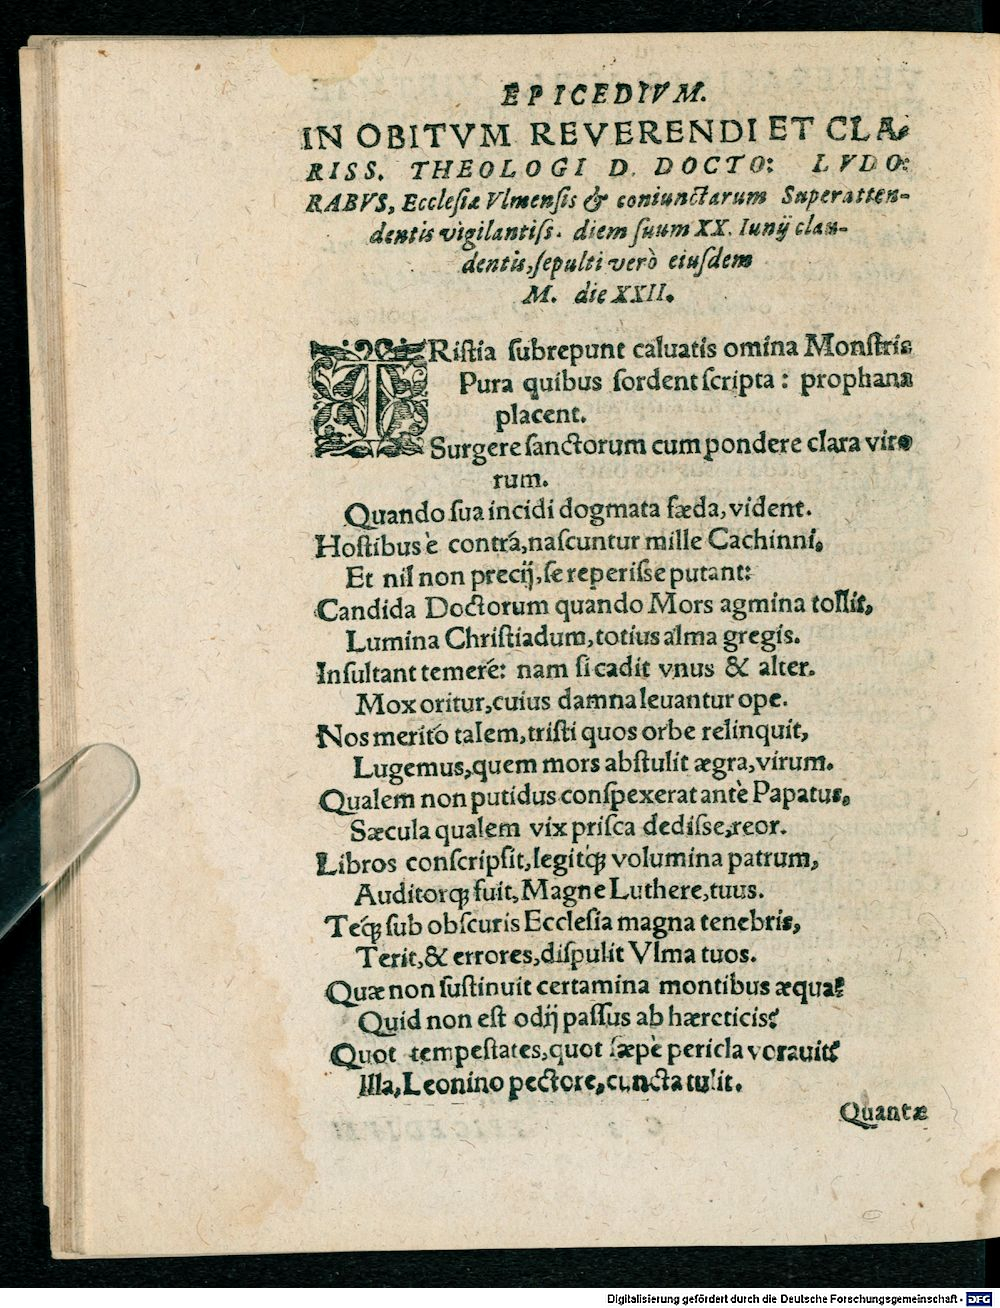 EPICEDIVM.
IN OBITVM REVERENDI ET CLA-
RISS. THEOLOGI D. DOCTO: LVDO:
RABVS, Ecclesiæ Vlmensis & coniunctarum Superatten-
dentis vigilantiss. diem suum XX. Iunij clau-
dentis, sepulti verò eiusdem
M. die XXII.
TRistia subrepunt caluatis omina Monstris
Pura quibus sordent scripta: prophana
placent.
Surgere sanctorum cum pondere clara viro
rum.
Quando sua incidi dogmata fæda, vident.
Hostibus è contrá, nascuntur mille Cachinni,
Et nil non precij, se reperisse putant:
Candida Doctorum quando Mors agmina tollit,
Lumina Christiadum, totius alma gregis.
Insultant temeré: nam si cadit vnus & alter.
Mox oritur, cuius damna leuantur ope.
Nos meritó talem, tristi quos orbe relinquit,
Lugemus, quem mors abstulit ægra, virum.
Qualem non putidus conspexerat antè Papatus,
Sæcula qualem vix prisca dedisse, reor.
Libros conscripsit, legitq́; volumina patrum,
Auditorq; fuit, Magne Luthere, tuus.
Teq́; sub obscuris Ecclesia magna tenebris,
Terit, & errores, dispulit Vlma tuos.
Quæ non sustinuit certamina montibus æqua?
Quid non est odij passus ab hæreticis?
Quot tempestates, quot sæpè pericla vorauit?
Illa, Leonino pectore, cuncta tulit.
Quantæ
Digitalisierung gefördert durch die Deutsche Forschungsgemeinschaft - DFG